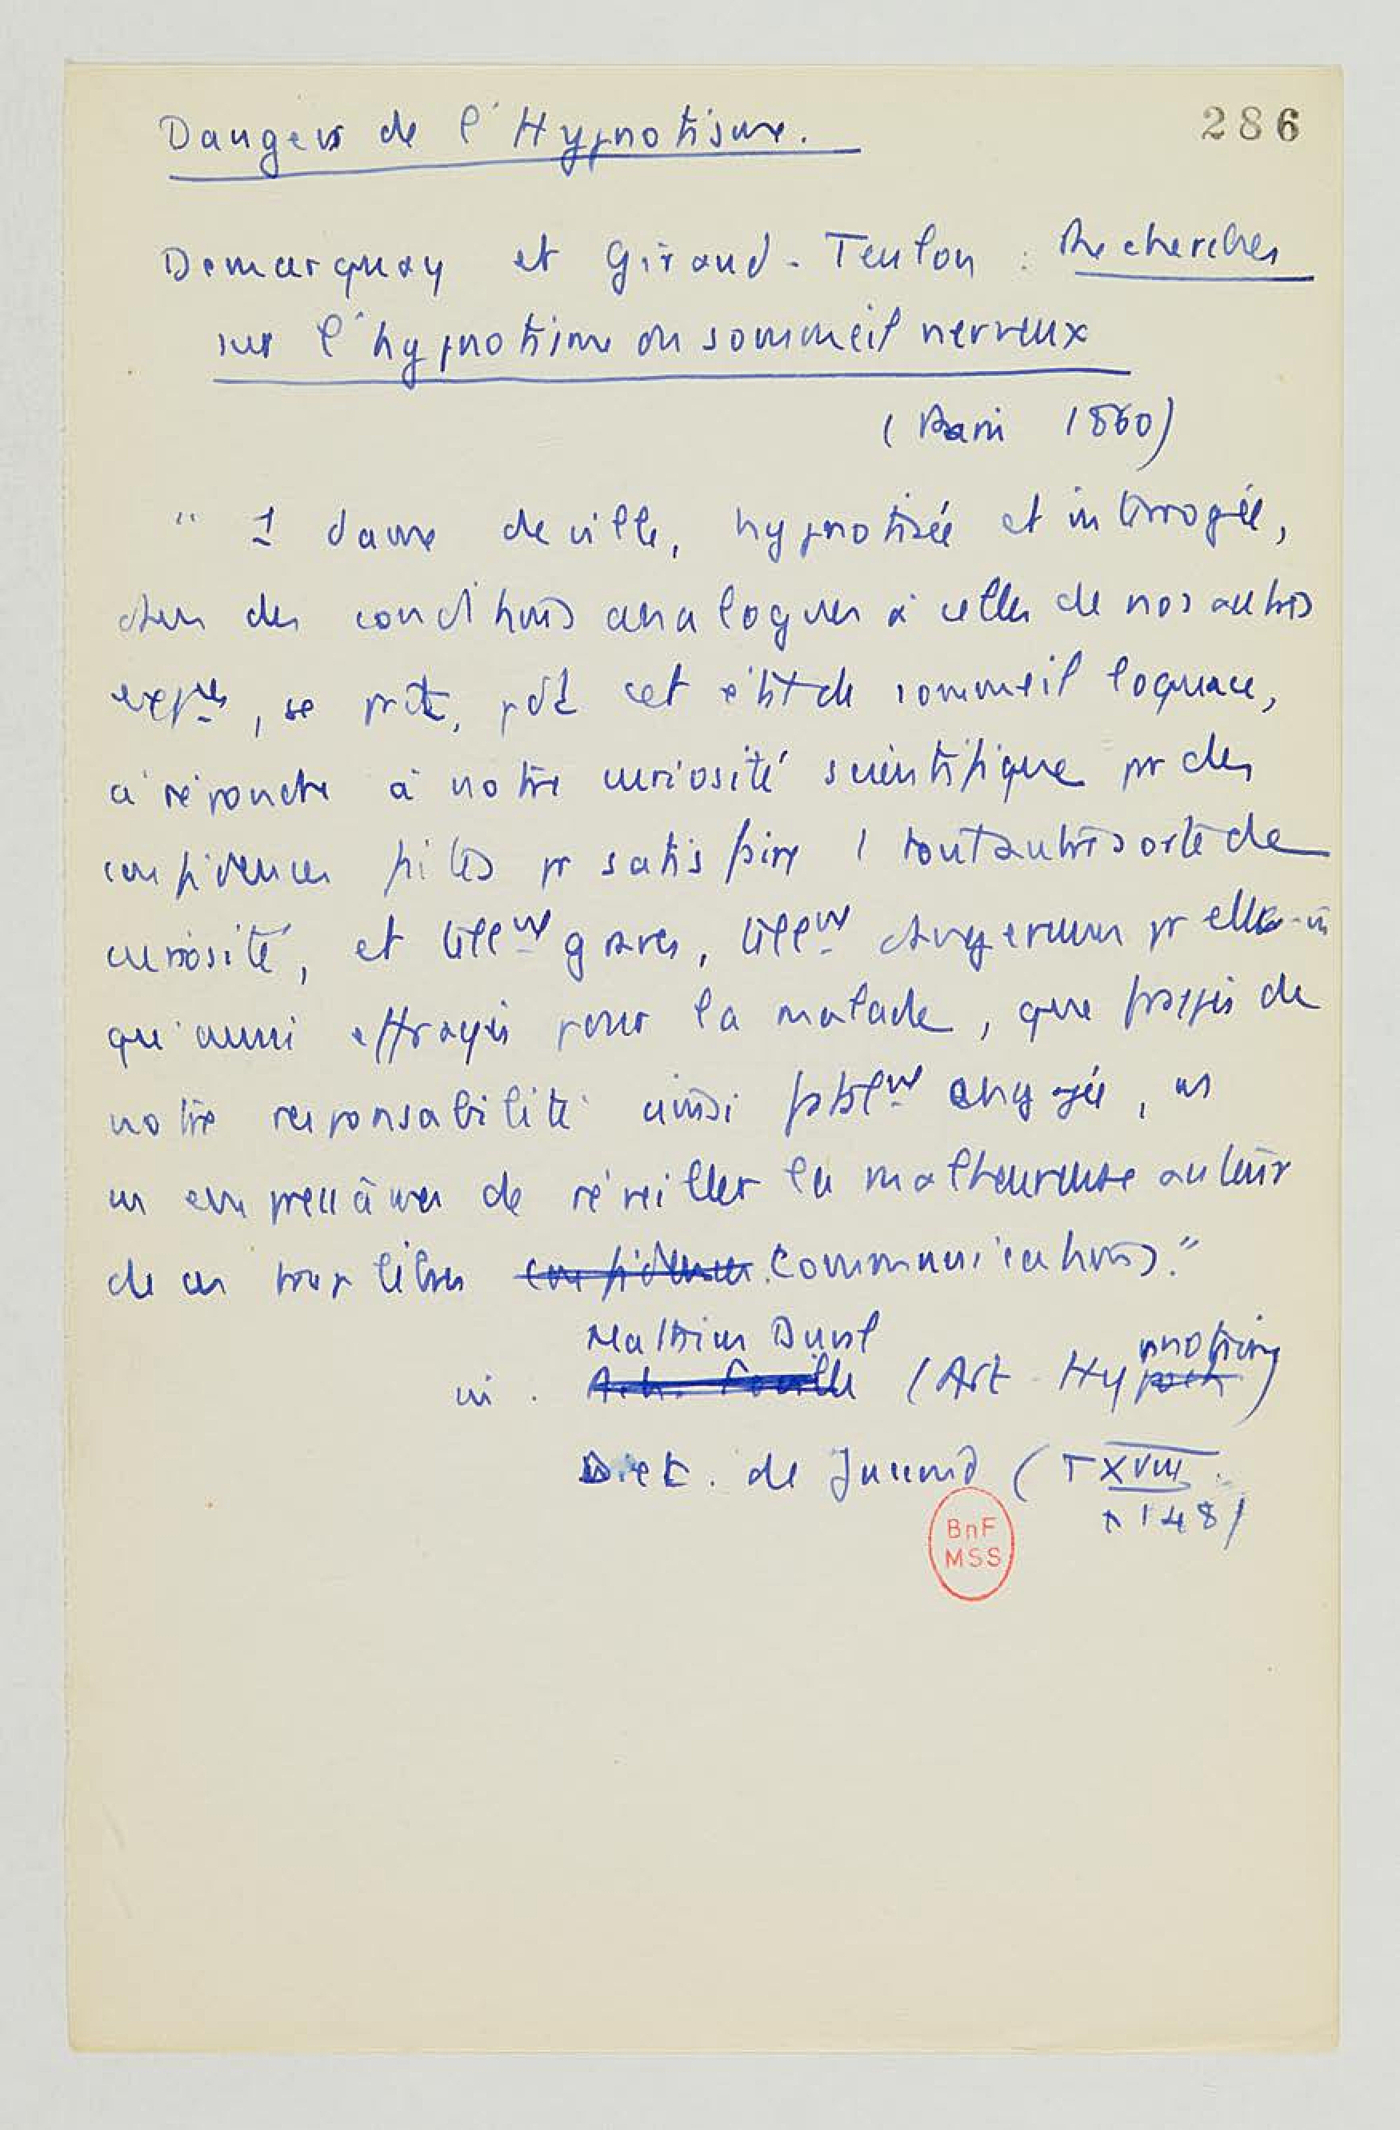 Dangers de l'Hypnotisme.
286
Demarquay et Giraud-Teulon : Recherches
sur l'hypnotisme ou sommeil nerveux
(Paris 1860)
" 1 dame de ville, hypnotisée et interrogée,
ds des conditions analogues à celles de nos autres
expces, se mit, pdt cet état de sommeil loquace,
à répondre à notre curiosité scientifique par des
confidences faites pr satisfaire 1 tout autre sorte de
curiosité, et tellmt graves, tellmt dangereuses pr elle-m
qu'aussi effrayés pour la malade, que frappés de
notre responsabilité ainsi fatalmt engagée, ns
ns empressâmes de réveiller la malheureuse auteur
de ces trop libres confidences communications."
Mathias Duval
in . Ach. Foville (Art Hypnotisme)
Dict. de Jaccoud (T XVIII
p 148)
BnF
MSS